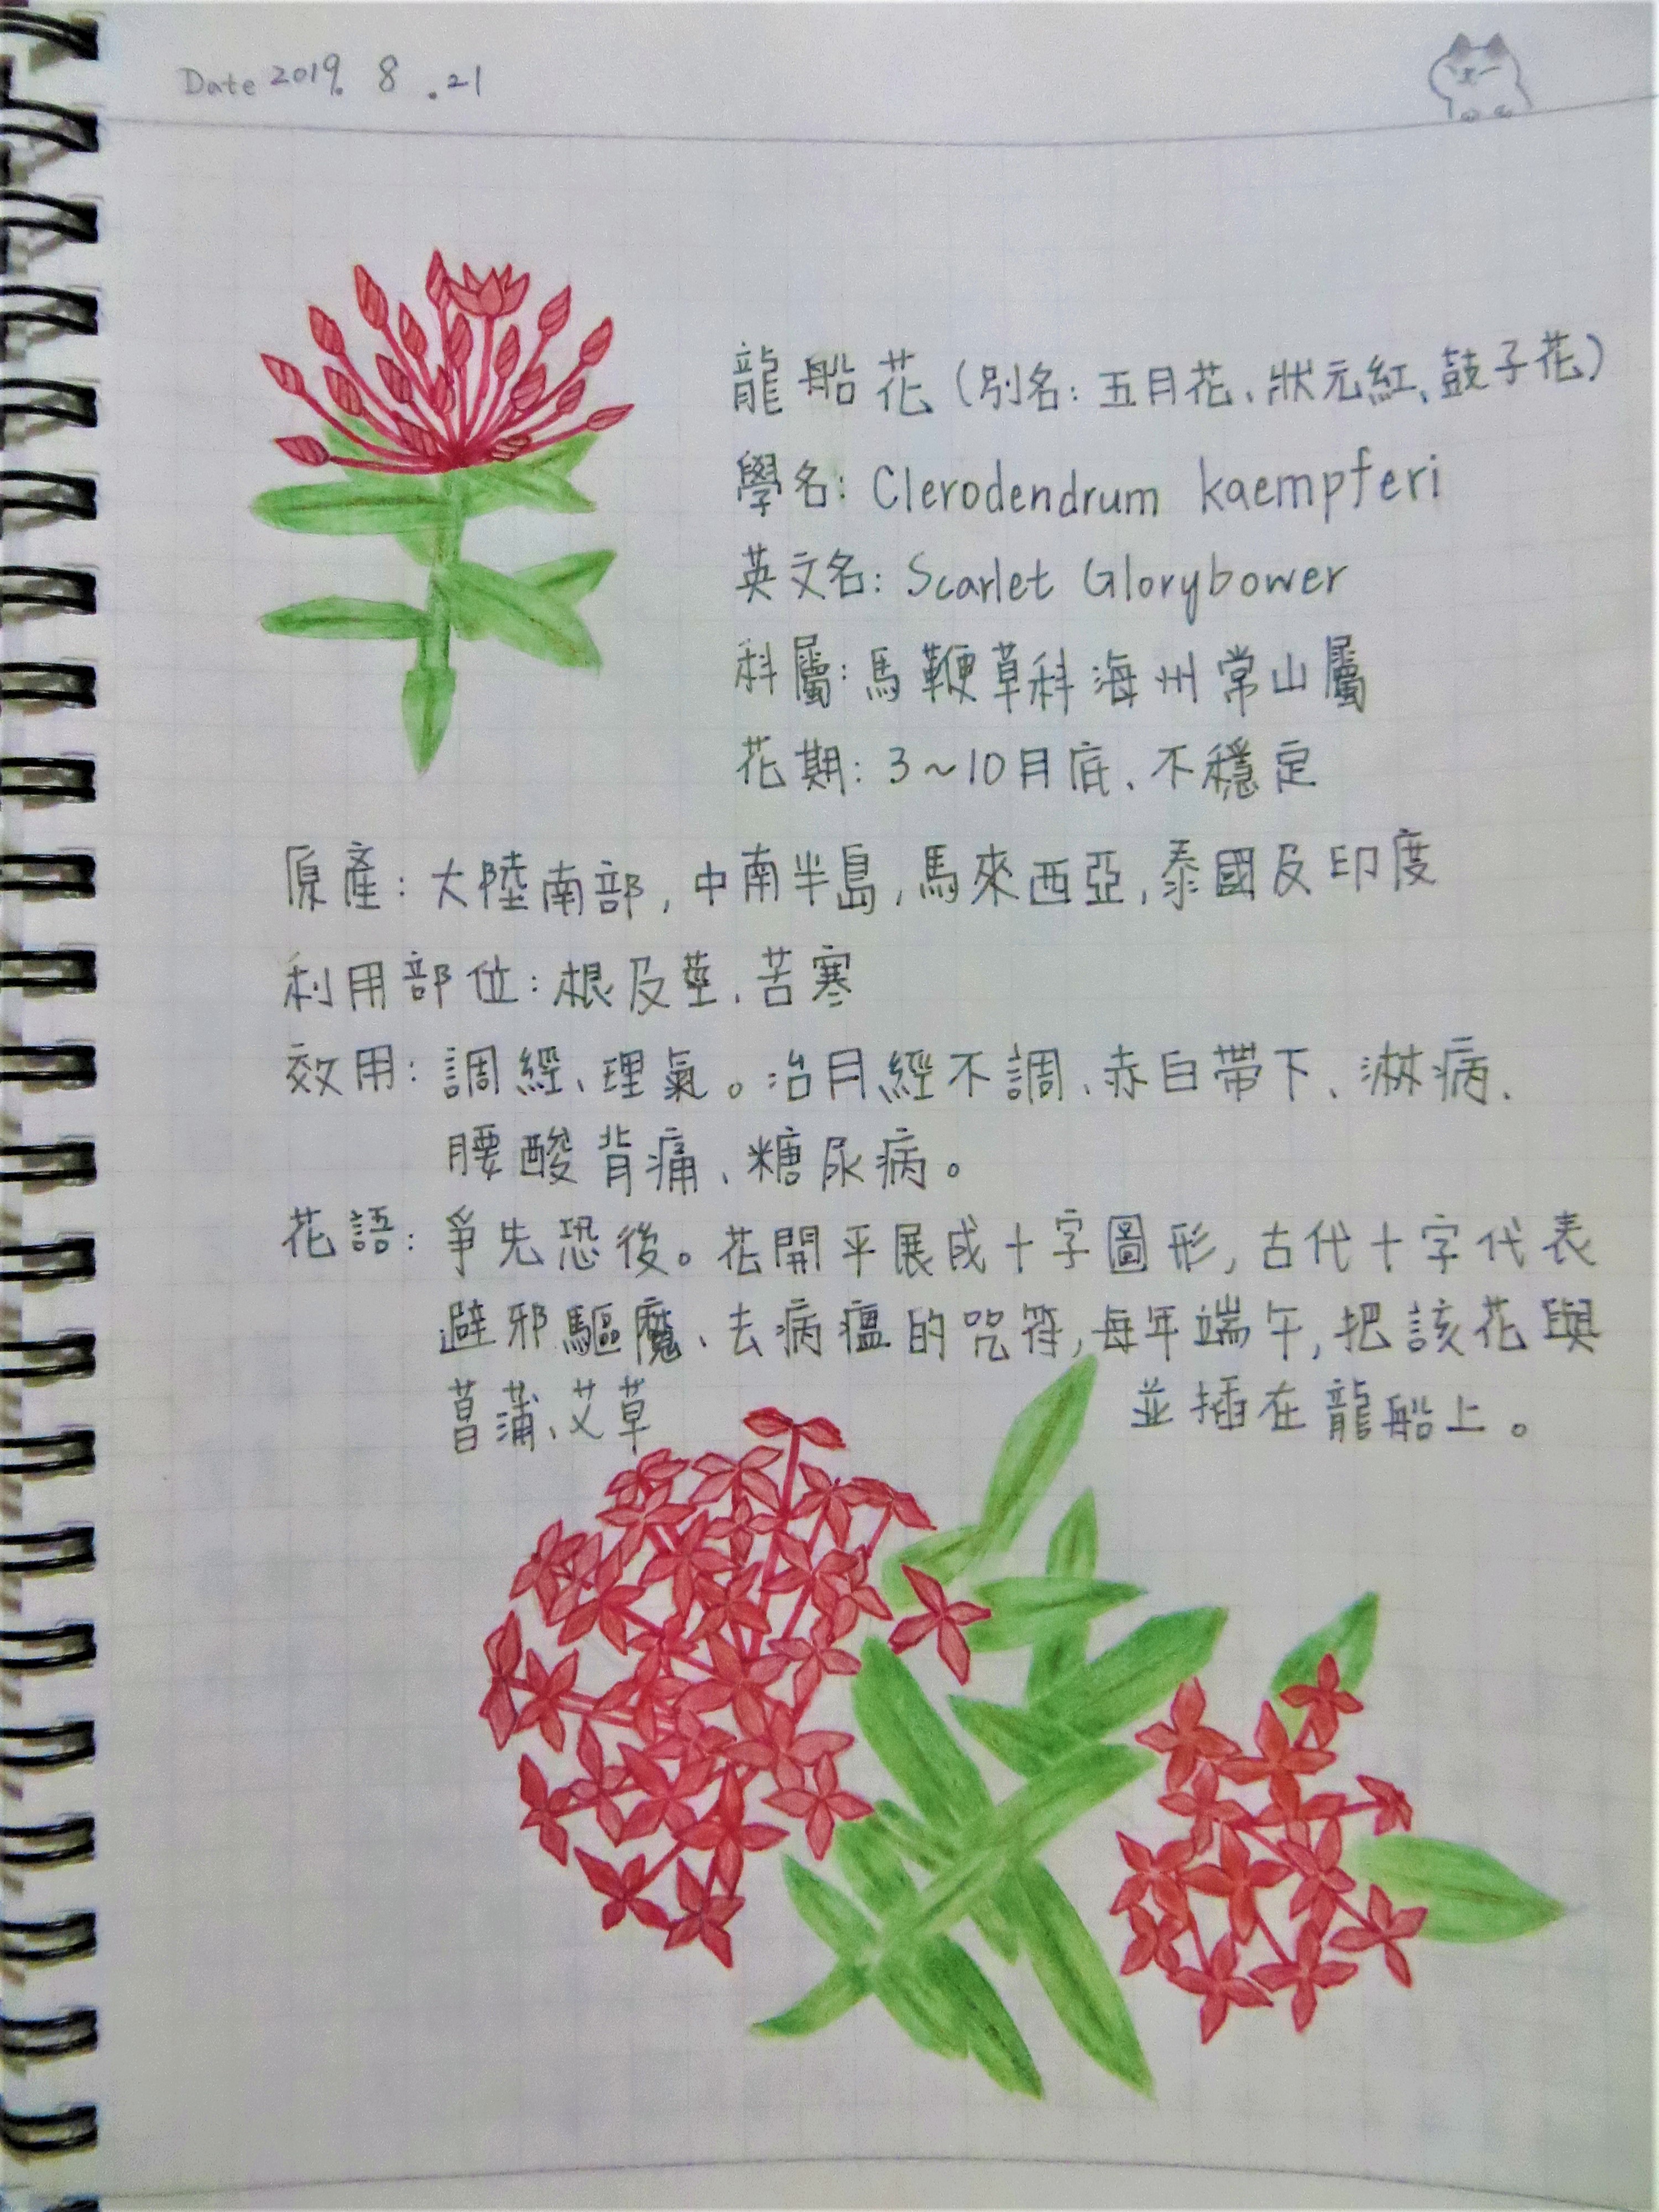 Date 2019. 8 .21
龍船花(別名:五月花、狀元紅、鼓子花)
學名: Clerodendrum kaempferi
英文名: Scarlet Glorybower
科屬:馬鞭草科海州常山屬
花期: 3~10月底、不穩定
原產:大陸南部,中南半島,馬來西亞,泰國及印度
利用部位:根及莖、苦寒
效用:調經、理氣。治月經不調、赤白帶下、淋病、
腰酸背痛、糖尿病。
花語:爭先恐後。花開平展成十字圖形,古代十字代表
避邪驅魔、去病瘟的咒符,每年端午,把該花與
菖蒲、艾草 並插在龍船上。